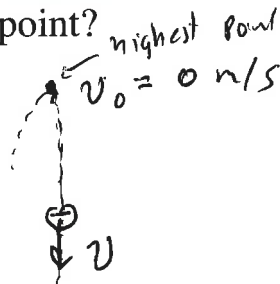 point?
highest point
v₀ = 0 m/s
v